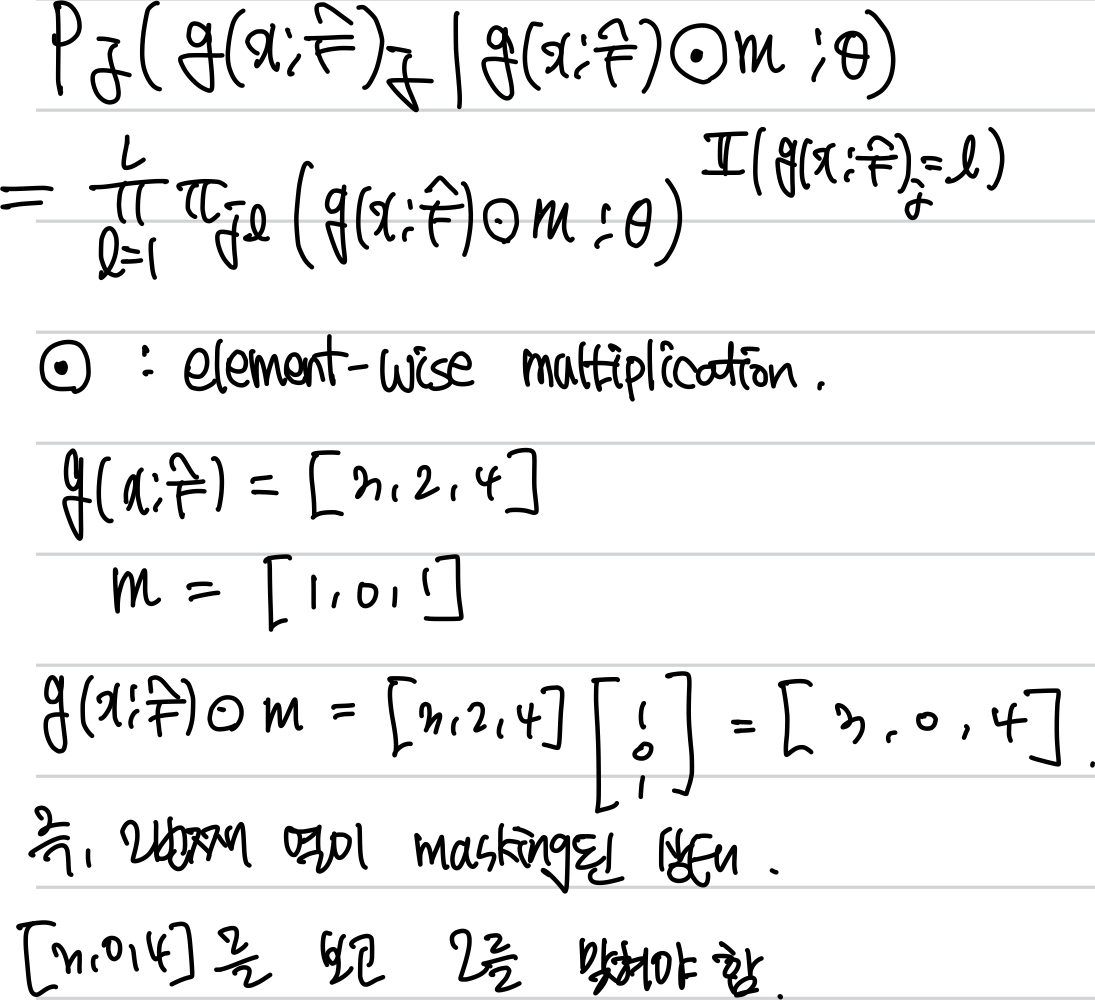 P_j(g(x;F̂)_j | g(x;F̂)⊙m ; θ)
= ∏_{l=1}^{L} π_{jl} (g(x;F̂)⊙m ; θ)^{I(g(x;F̂)_j = l)}
⊙ : element-wise multiplication.
g(x;F̂) = [3, 2, 4]
m = [1, 0, 1]
g(x;F̂)⊙m = [3, 2, 4] [1 0 1] = [3, 0, 4].
즉, 2번째 열이 masking된 상태.
[3, 0, 4]를 보고 2를 맞혀야 함.